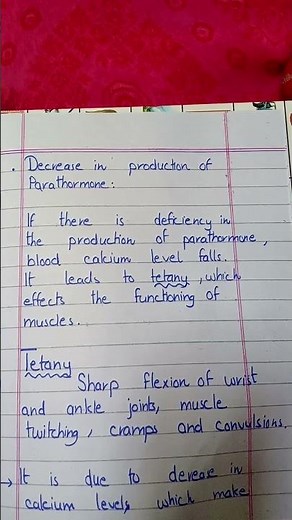 . Decrease in production of
Parathormone:
If there is deficiency in
the production of parathormone,
blood calcium level falls.
It leads to tetany, which
effects the functioning of
muscles.
Tetany
Sharp flexion of wrist
and ankle joints, muscle
twitching, cramps and convulsions.
→ It is due to derease in
calcium levels which make